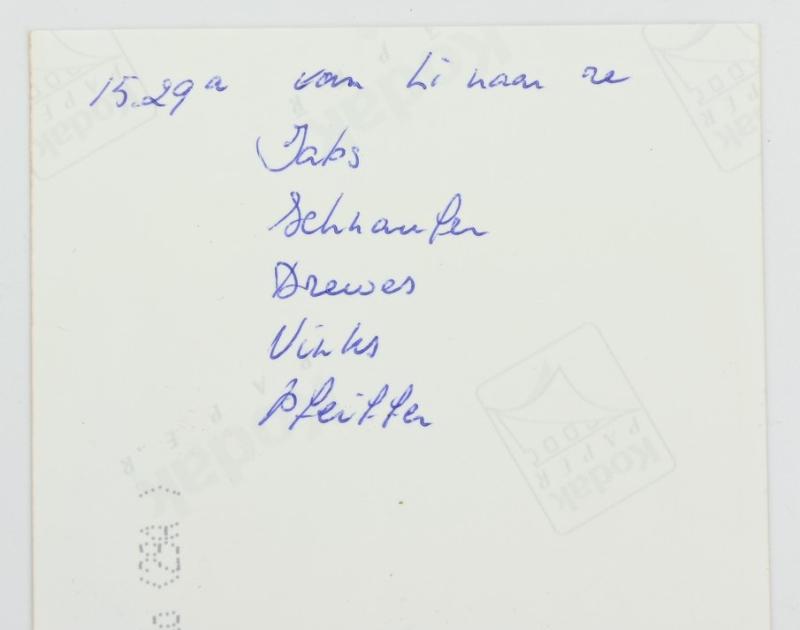 15.29a van Li naar re
Jabs
Schnaufer
Drewes
Vinks
Pfeiffer
Kodak
PAPER
Kodak
PAPER
Kodak
PAPER
Kodak
PAPER
Kodak
PAPER